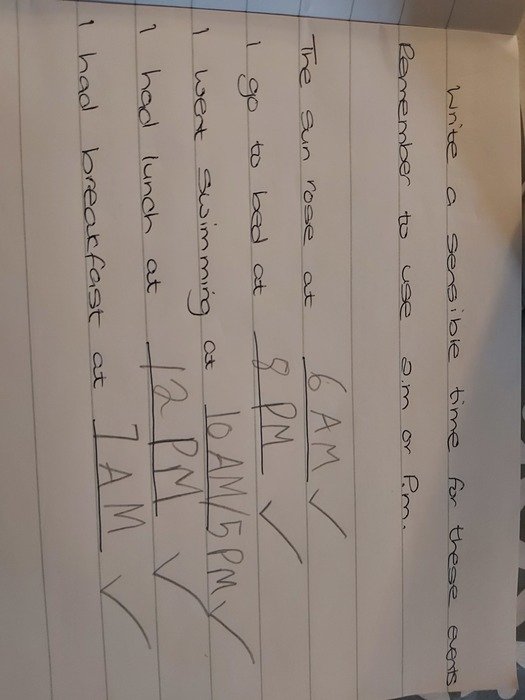 Write a sensible time for these events
Remember to use a.m or P.m.
The sun rose at 6 AM ✓
I go to bed at 8 PM ✓
I went swimming at 10 AM/5 PM ✓
I had lunch at 12 PM ✓
I had breakfast at 7 AM ✓